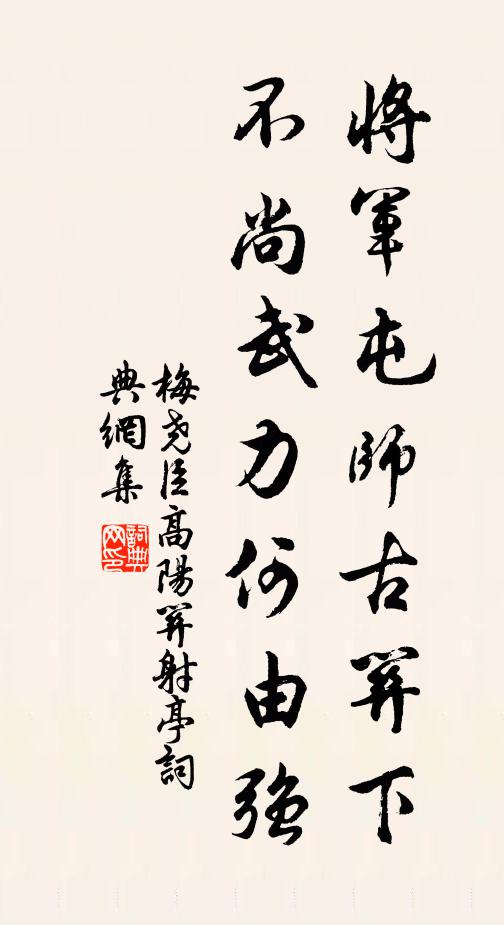 將軍屯師古關下
不尚武力何由強
梅堯臣高陽關射亭詞
典網集
詞典網印